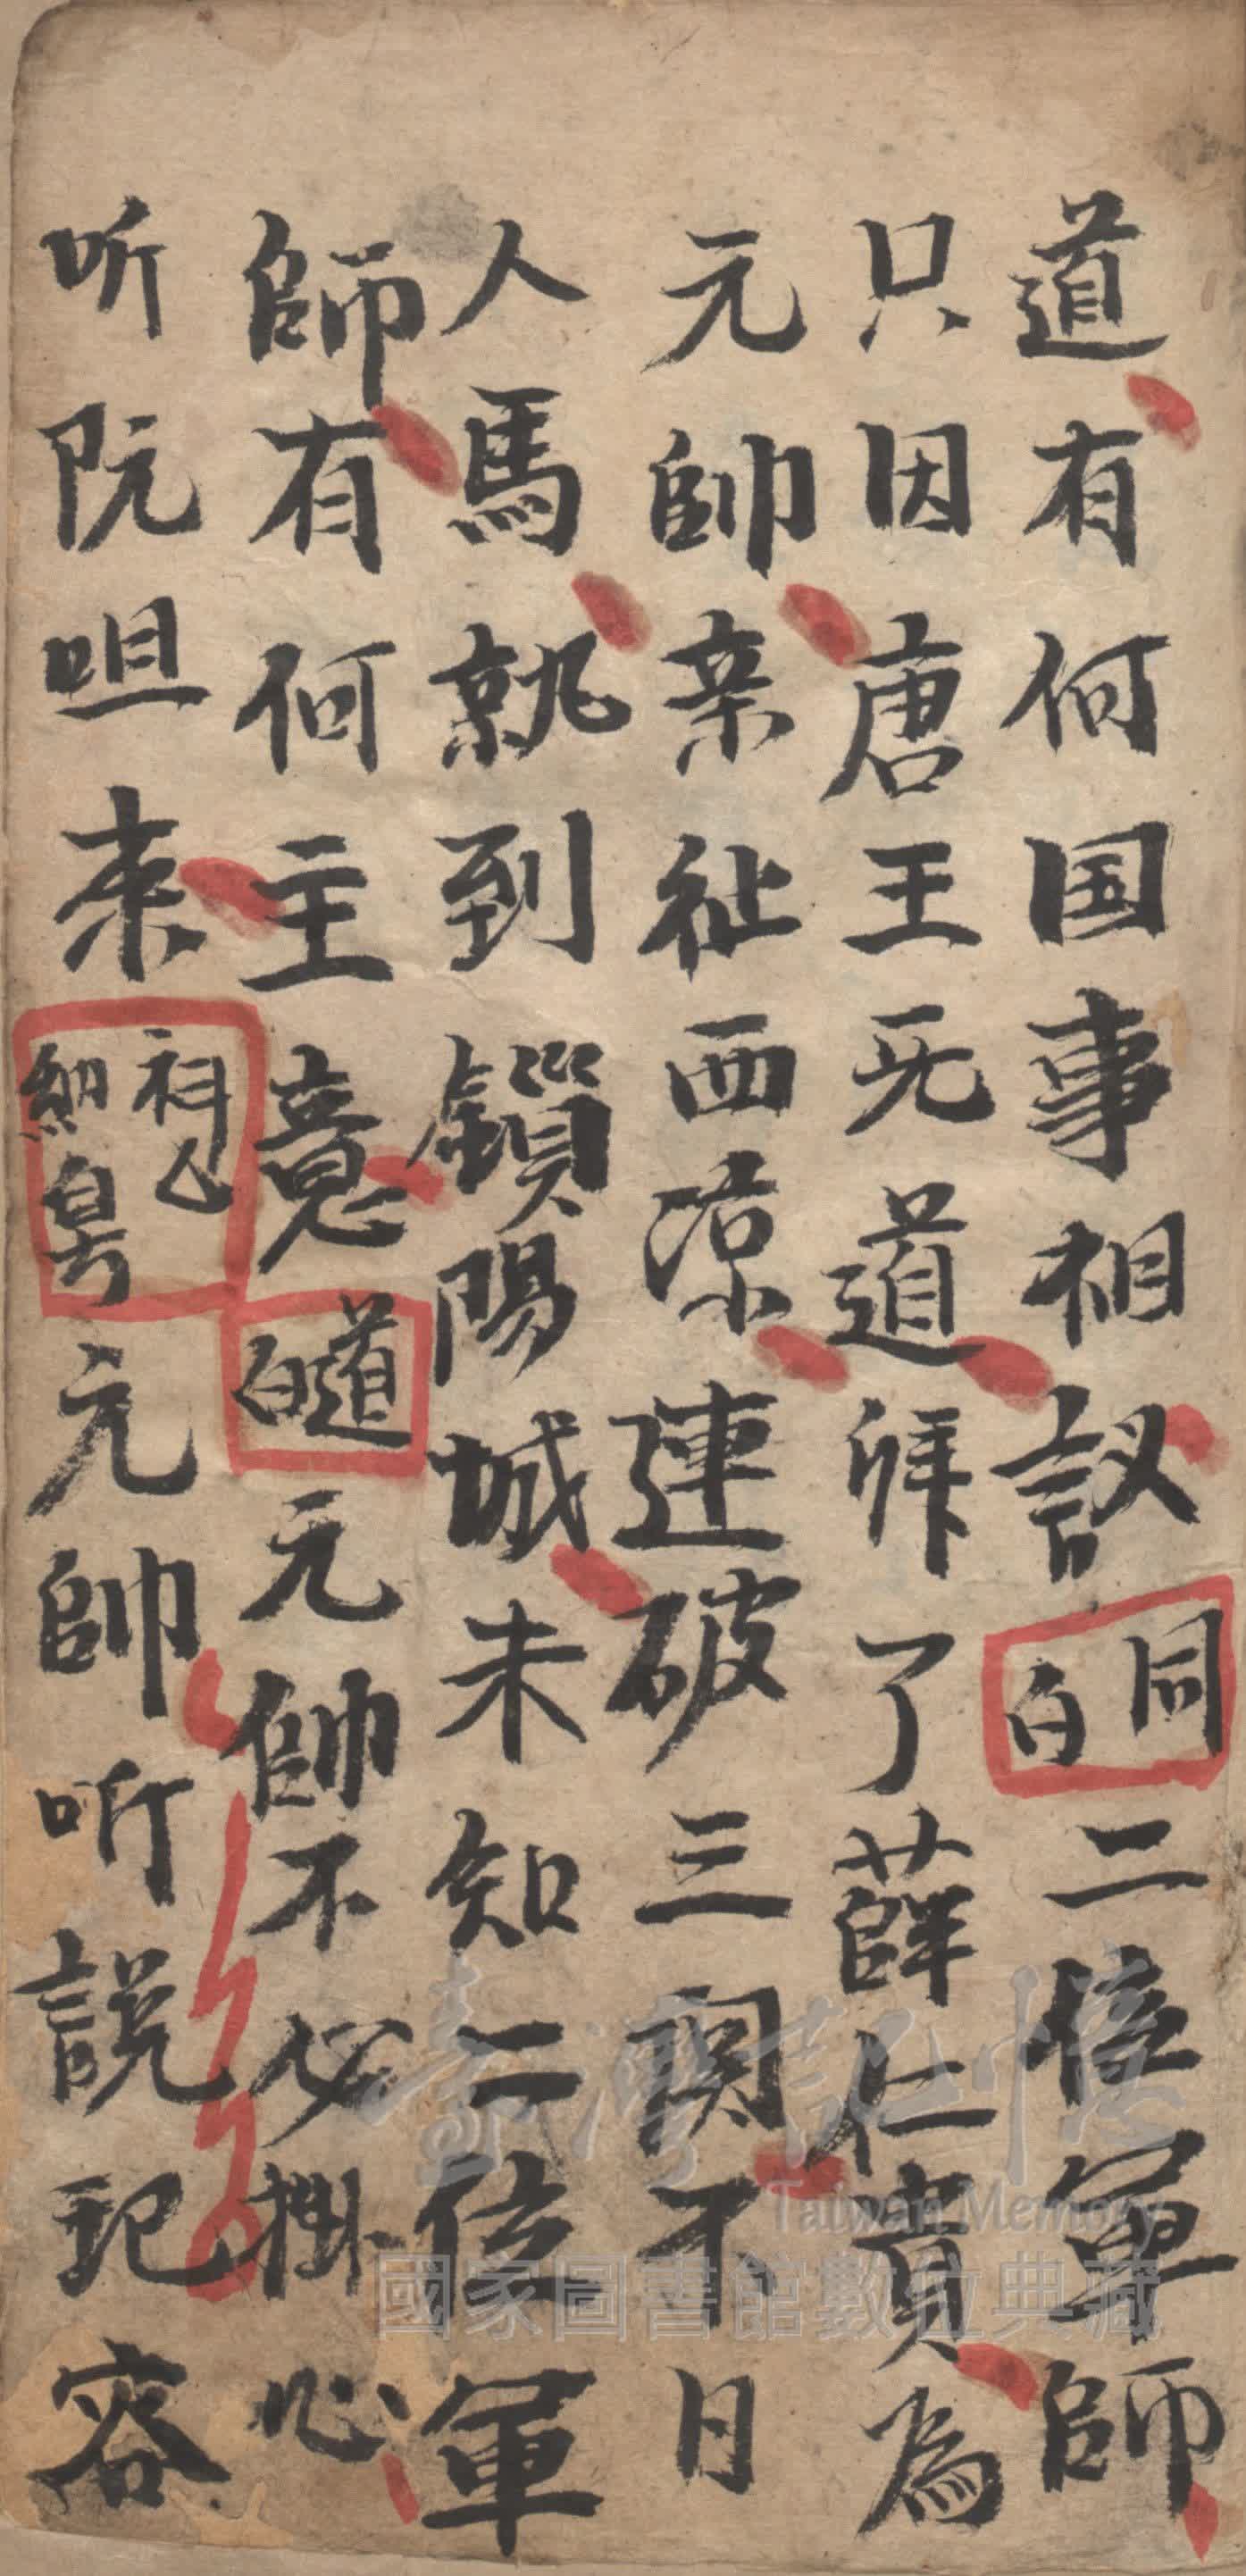 道有何国事相議同白二位軍師
只因唐王无道拜了薛仁貴為
元帥亲征西凉連破三関不日
人馬就到鎖陽城未知二位軍
師有何主意道白元帥不必掛心
听阮咀來元帥听説記容
臺灣記憶
Taiwan Memory
國家圖書館數位典藏